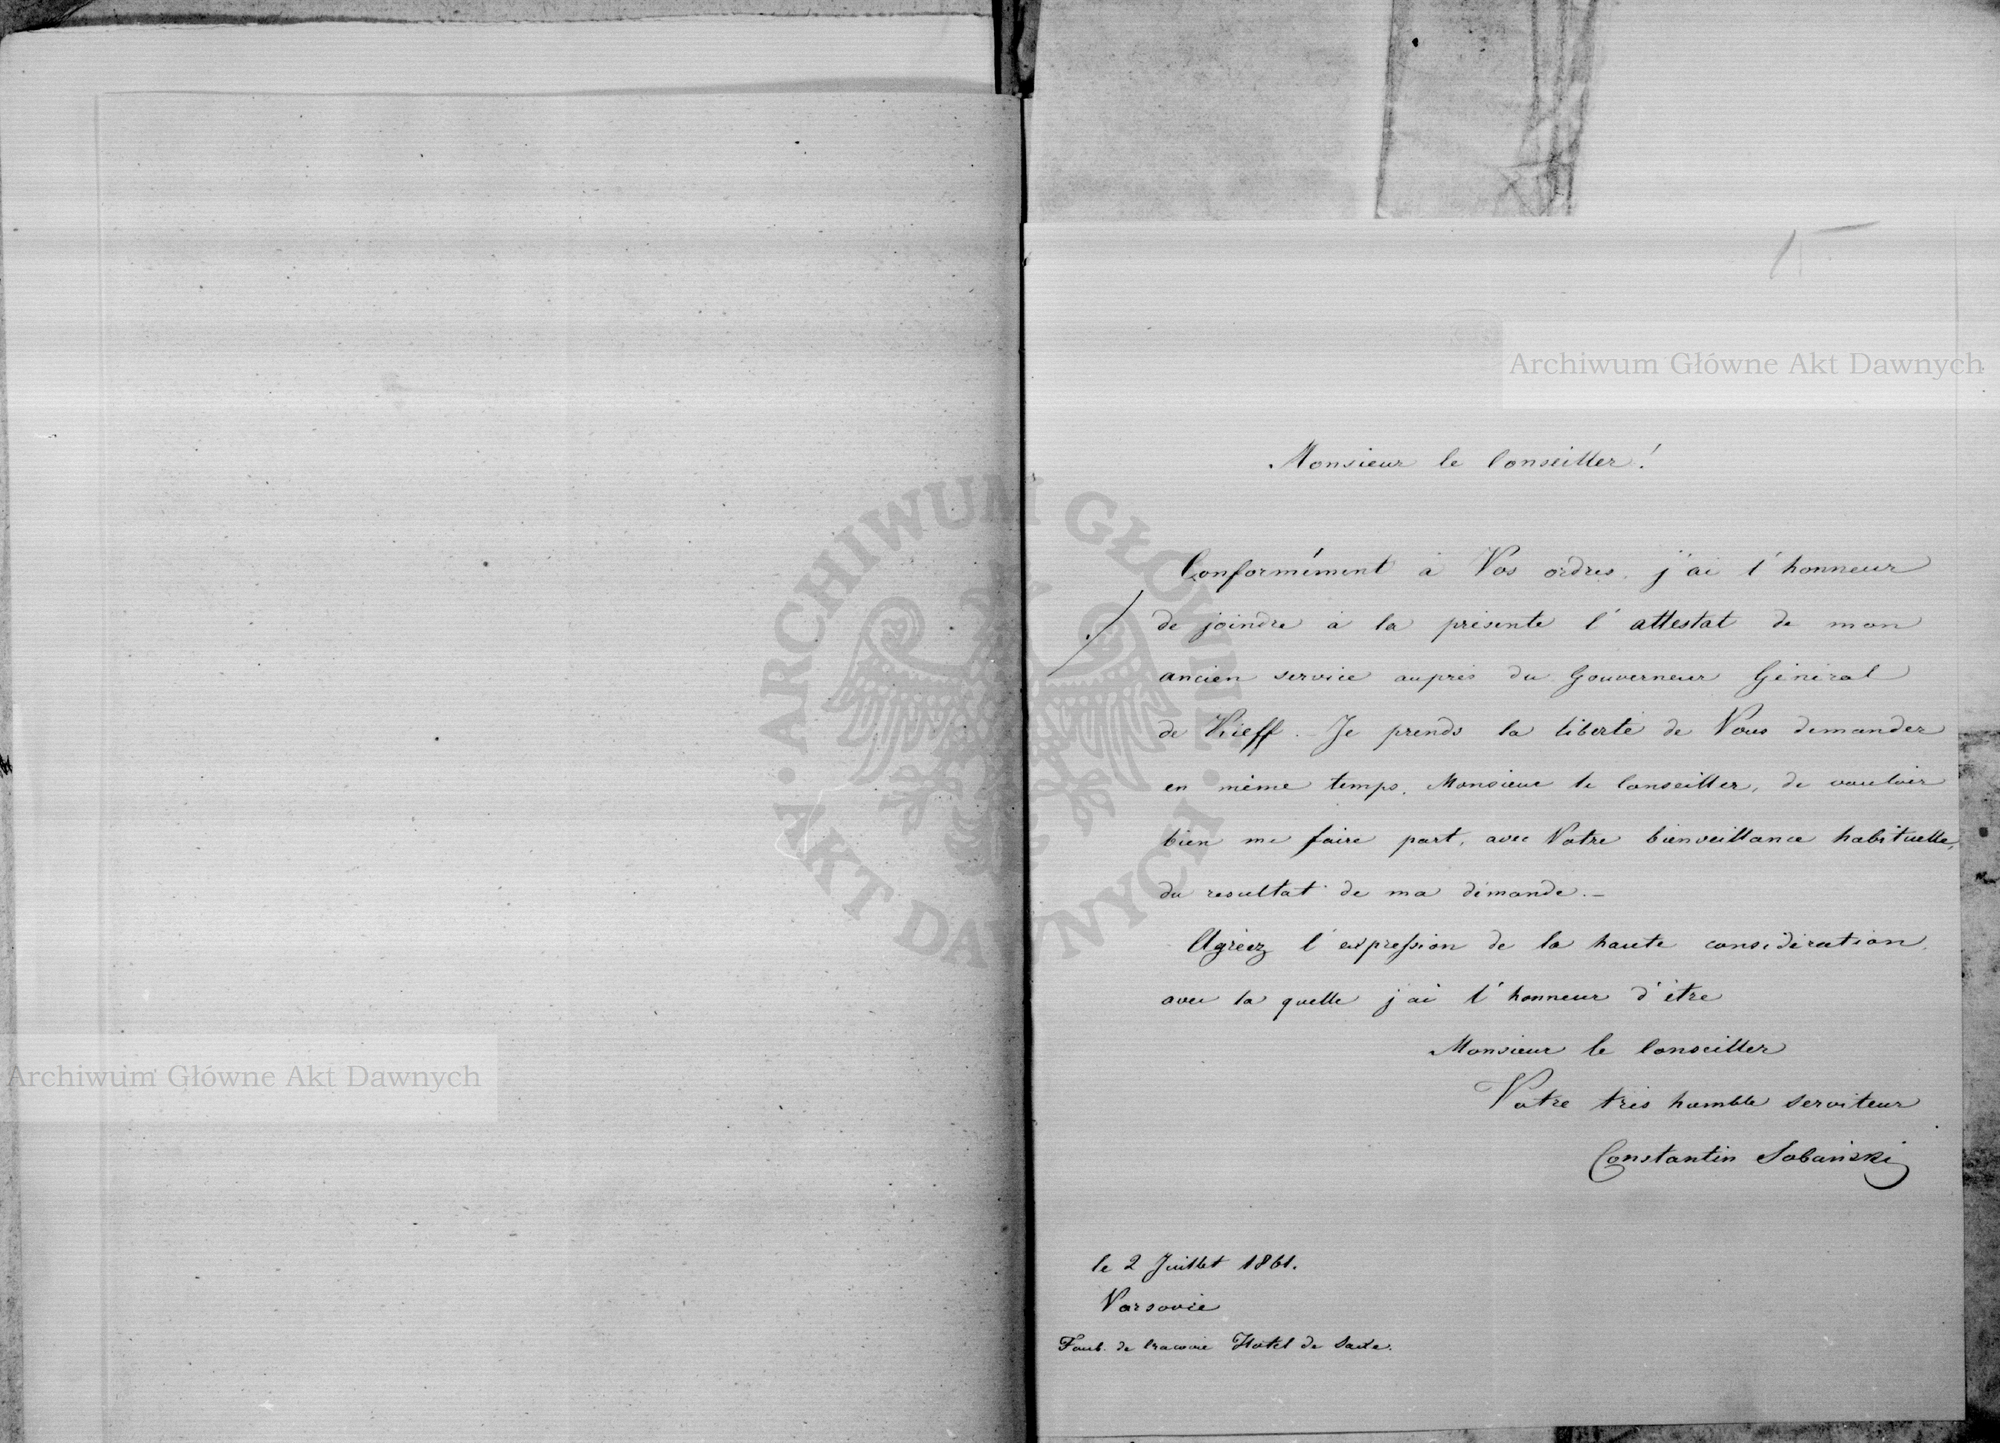 15
Archiwum Główne Akt Dawnych
Monsieur le Conseiller!
Conformément à Vos ordres, j'ai l'honneur
de joindre à la présente l'attestat de mon
ancien service auprès du Gouverneur Général
de Kieff. – Je prends la liberté de Vous demander
en même temps, Monsieur le Conseiller, de vouloir
bien me faire part, avec Votre bienveillance habituelle,
du resultat de ma démande. –
Agréez l'expression de la haute considération,
avec la quelle j'ai l'honneur d'être
Monsieur le Conseiller
Votre très humble serviteur
Constantin Sobański
le 2 Juillet 1861.
Varsovie
Faub. de Cracovie Hotel de Saxe.
Archiwum Główne Akt Dawnych
ARCHIWUM GŁÓWNE
AKT DAWNYCH